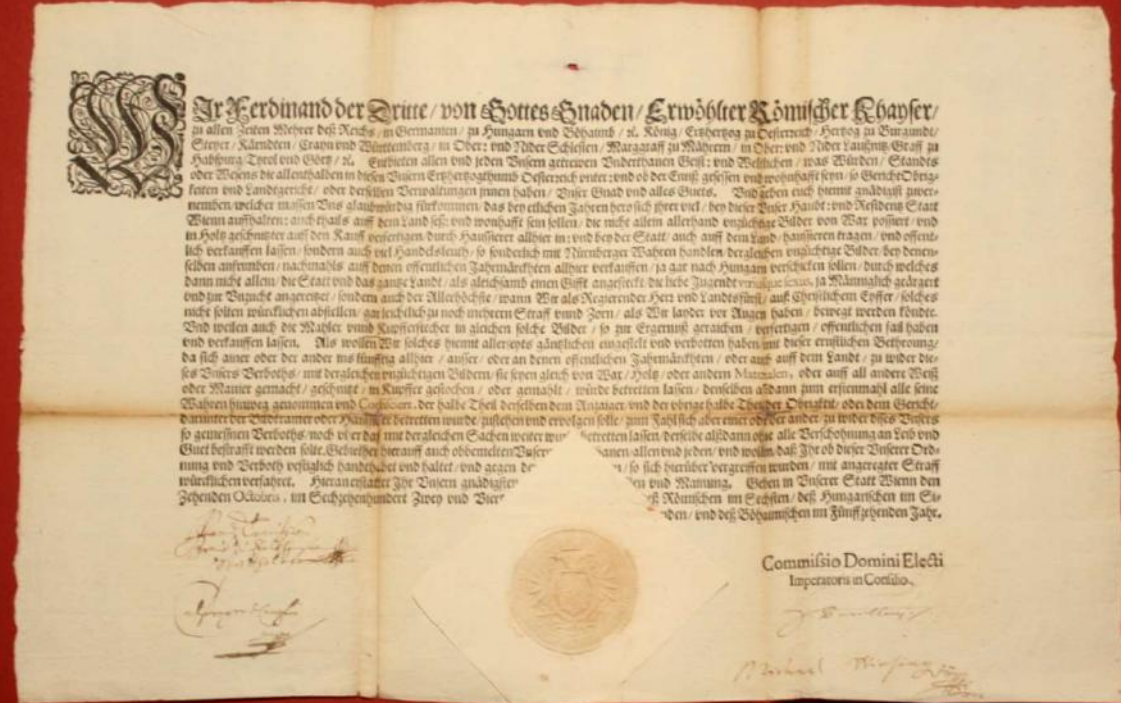 WIr Ferdinand der Dritte / von Gottes Gnaden / Erwöhlter Römischer Khayser /
zu allen Zeiten Mehrer deß Reichs / in Germanien / zu Hungarn vnd Böhaimb / ꝛc. König / Ertzhertzog zu Oesterreich / Hertzog zu Burgundt /
Steyer / Kärndten / Crayn vnd Württemberg / in Ober: vnd Nider Schlesien / Marggraff zu Mährern / in Ober: vnd Nider Laußnitz / Graff zu
Habspurg / Tyrol vnd Görtz / ꝛc. Entbieten allen vnd jeden Vnsern getrewen Vnderthanen Geist: vnd Weltlichen / was Würden / Standts
oder Wesens die allenthalben in disen Vnsern Ertzhertzogthumb Oesterreich vnter: vnd ob der Ennß gesessen vnd wohnhafft seyn / so Gericht Obrig-
keiten vnd Landtgericht / oder derselben Verwaltungen jnnen haben / Vnser Gnad vnd alles Guets. Vnd geben euch hiemit gnädigist zuver-
nemben / welcher massen Vns glaubwürdig fürkommen / das bey etlichen Jahren hero sich jhrer viel / bey diser Vnser Haubt: vnd Residentz Statt
Wienn auffhalten: auch thails auff dem Land seß: vnd wonhafft sein sollen / die nicht allein allerhand vnzüchtige Bilder von Wax possiert / vnd
in Holtz geschnitzter auff den Kauff verfertigen / durch Haussierer allhier in: vnd bey der Statt / auch auff dem Land / haussieren tragen / vnd offent-
lich verkauffen lassen / sondern auch viel Handelsleuth / so sonderlich mit Nürnberger Wahren handlen / dergleichen vnzüchtige Bilder / bey denen-
selben anfrimben / nachmahls auff denen offentlichen Jahrmärckhten allhier verkauffen / ja gar nach Hungarn verschicken sollen / durch welches
dann nicht allein / die Statt vnd das gantze Landt / als gleichsamb einen Gifft angesteckt / die liebe Jugendt vtriusque sexus, ja Männiglich geärgert
vnd zur Vnzucht angereitzet / sondern auch der Allerhöchste / wann Wir als Regierender Herr vnd Landtsfürst / auß Christlichem Eyffer / solches
nicht solten würcklichen abstellen / gar leichtlich zu noch mehrern Straff vnnd Zorn / als Wir layder vor Augen haben / bewegt werden köndte.
Vnd weilen auch die Mahler vnnd Kupfferstecher in gleichen solche Bilder / so zur Ergernuß geraichen / verfertigen / offentlichen fail haben
vnd verkauffen lassen. Als wollen Wir solches hiemit allerseyts gäntzlichen eingestelt vnd verbotten haben / mit dieser ernstlichen Bethroung /
da sich ainer oder der ander ins künfftig allhier / ausser / oder an denen offentlichen Jahrmärckhten / oder auch auff dem Landt / zu wider die-
ses Vnsers Verboths / mit dergleichen vnzüchtigen Bildern / sie seyen gleich von Wax / Holtz / oder andern Materialen, oder auff all andere Weiß
oder Manier gemacht / geschnitzt / in Kupffer gestochen / oder gemahlt / würde betretten lassen / denselben alßdann zum erstenmahl alle seine
Wahren hinweg genommen vnd Confisciert, der halbe Theil derselben dem Anzaiger / vnd der vbrige halbe Theil der Obrigkeit / oder dem Gericht /
darunter der Bildkramer oder Haussierer betretten wurde / zustehen vnd ervolgen solle / zum Fahl sich aber einer oder der ander / zu wider dises Vnsers
so gemessnen Verboths / noch vber das / mit dergleichen Sachen weiter wurde betretten lassen / derselbe alßdann ohne alle Verschohnung an Leib vnd
Guet bestrafft werden solte. Gebiethen hierauff auch obbemelten Vnsern hanen allen vnd jeden / vnd wollen / daß Ihr ob diser Vnserer Ord-
nung vnd Verboth vestiglich handthabet vnd haltet / vnd gegen de / so sich hierüber vergreiffen wurden / mit angeregter Straff
würcklichen verfahret. Hieran erstattet Ihr Vnsern gnädigisten en vnd Mainung. Geben in Vnserer Statt Wienn den
Zehenden Octobris, im Sechzehenhundert Zwey vnd Vier eß Römischen im Sechsten / deß Hungarischen im Si-
nden / vnd deß Böhaimischen im Fünffzehenden Jahr.
Commissio Domini Electi
Imperatoris in Consilio.